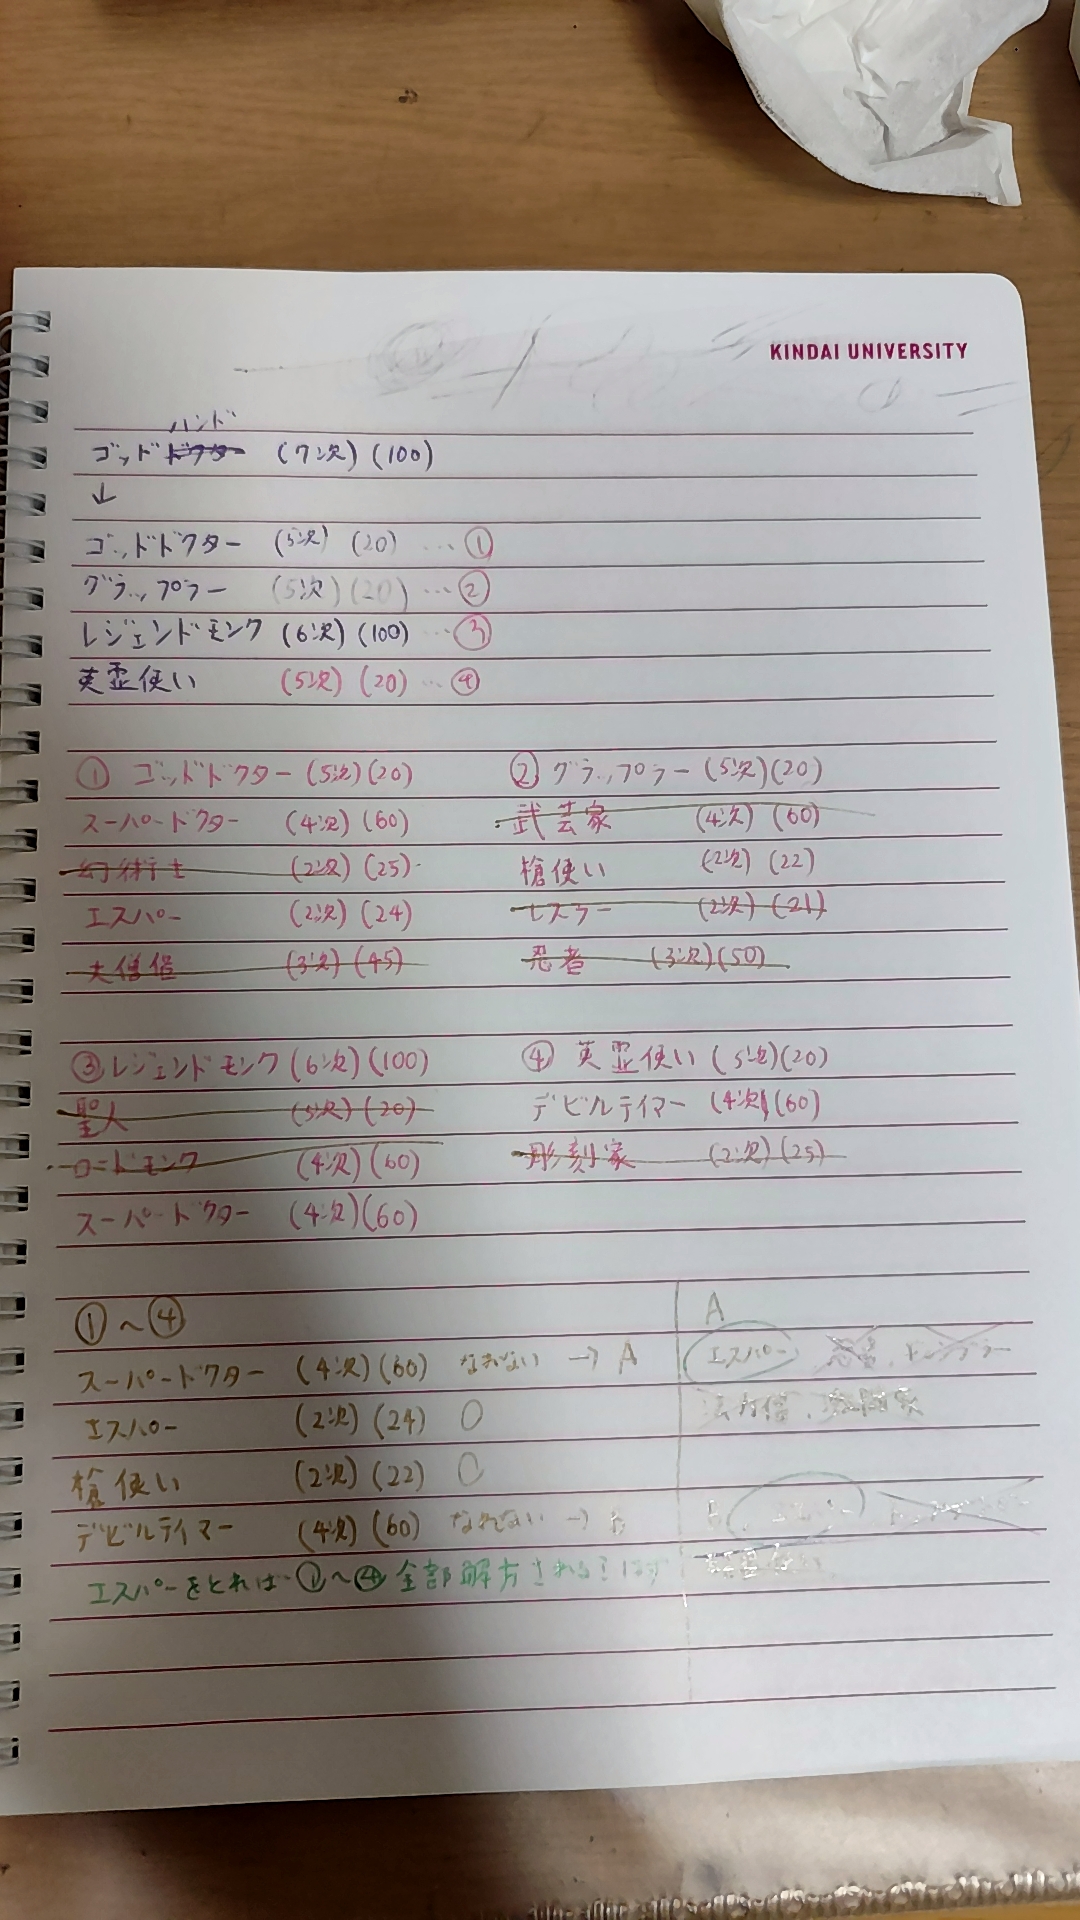 KINDAI UNIVERSITY
ハンド
ゴッドドクター (7次) (100)
↓
ゴッドドクター (5次) (20) … ①
グラップラー (5次) (20) … ②
レジェンドモンク (6次) (100) … ③
英霊使い (5次) (20) … ④
① ゴッドドクター (5次) (20)
スーパードクター (4次) (60)
幻術士 (2次) (25)
エスパー (2次) (24)
大僧侶 (3次) (45)
② グラップラー (5次) (20)
武芸家 (4次) (60)
槍使い (2次) (22)
レスラー (2次) (21)
忍者 (3次) (50)
③ レジェンドモンク (6次) (100)
聖人 (5次) (20)
ロードモンク (4次) (60)
スーパードクター (4次) (60)
④ 英霊使い (5次) (20)
デビルテイマー (4次) (60)
彫刻家 (2次) (25)
①～④
スーパードクター (4次) (60) なれない → A
エスパー (2次) (24) ○
槍使い (2次) (22) ○
デビルテイマー (4次) (60) なれない → B
エスパーをとれば ①～④ 全部解方される！はず
A
エスパー
B